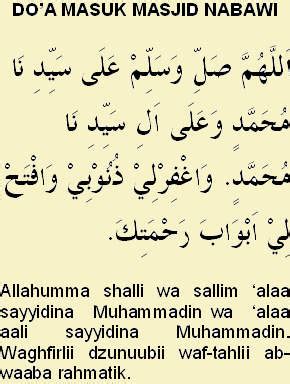 DO'A MASUK MASJID NABAWI
اَللَّهُمَّ صَلِّ وَسَلِّمْ عَلَى سَيِّدِ نَا
مُحَمَّدٍ وَعَلَى اَلِ سَيِّدِ نَا
مُحَمَّدٍ. وَاغْفِرْلِيْ ذُنُوْبِيْ وَافْتَحْ
لِيْ اَبْوَابَ رَحْمَتِكَ.
Allahumma shalli wa sallim 'alaa
sayyidina Muhammadin wa 'alaa
aali sayyidina Muhammadin.
Waghfirlii dzunuubii waf-tahlii ab-
waaba rahmatik.